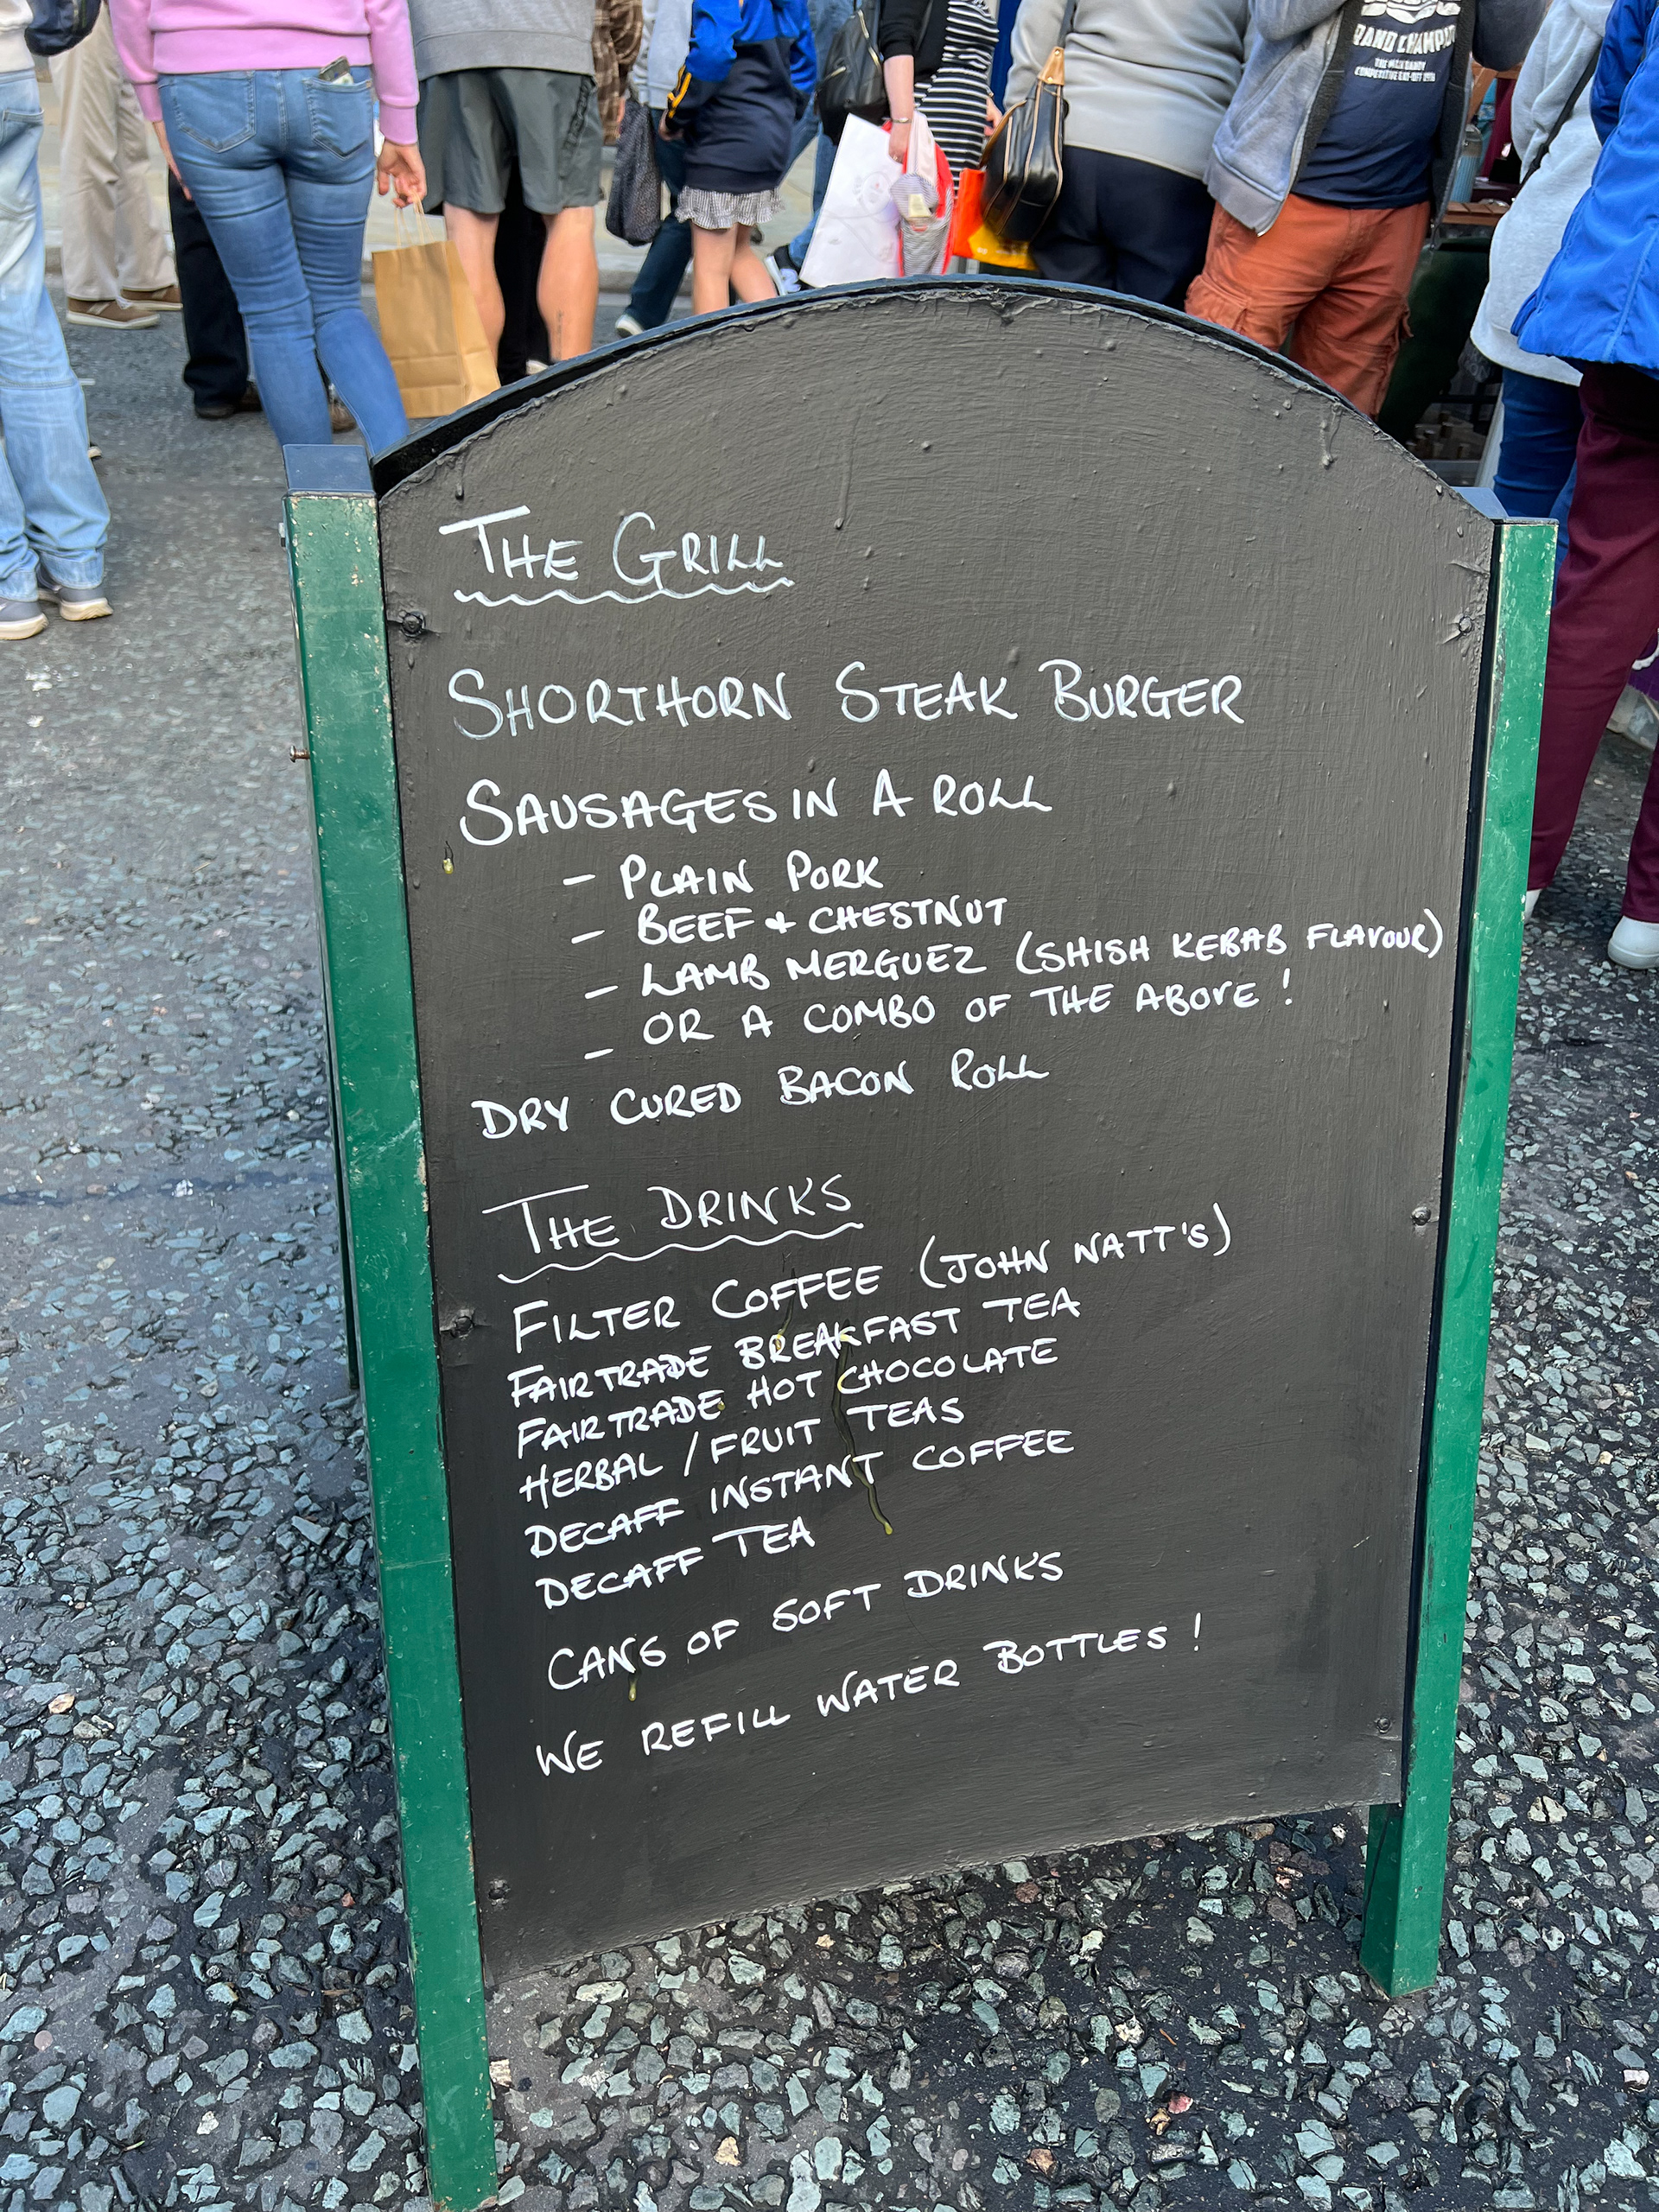 RAND CHAMPIO
THE GRILL
SHORTHORN STEAK BURGER
SAUSAGES IN A ROLL
- PLAIN PORK
- BEEF & CHESTNUT
- LAMB MERGUEZ (SHISH KEBAB FLAVOUR)
- OR A COMBO OF THE ABOVE!
DRY CURED BACON ROLL
THE DRINKS
FILTER COFFEE (JOHN WATT'S)
FAIRTRADE BREAKFAST TEA
FAIRTRADE HOT CHOCOLATE
HERBAL / FRUIT TEAS
DECAFF INSTANT COFFEE
DECAFF TEA
CANS OF SOFT DRINKS
WE REFILL WATER BOTTLES!